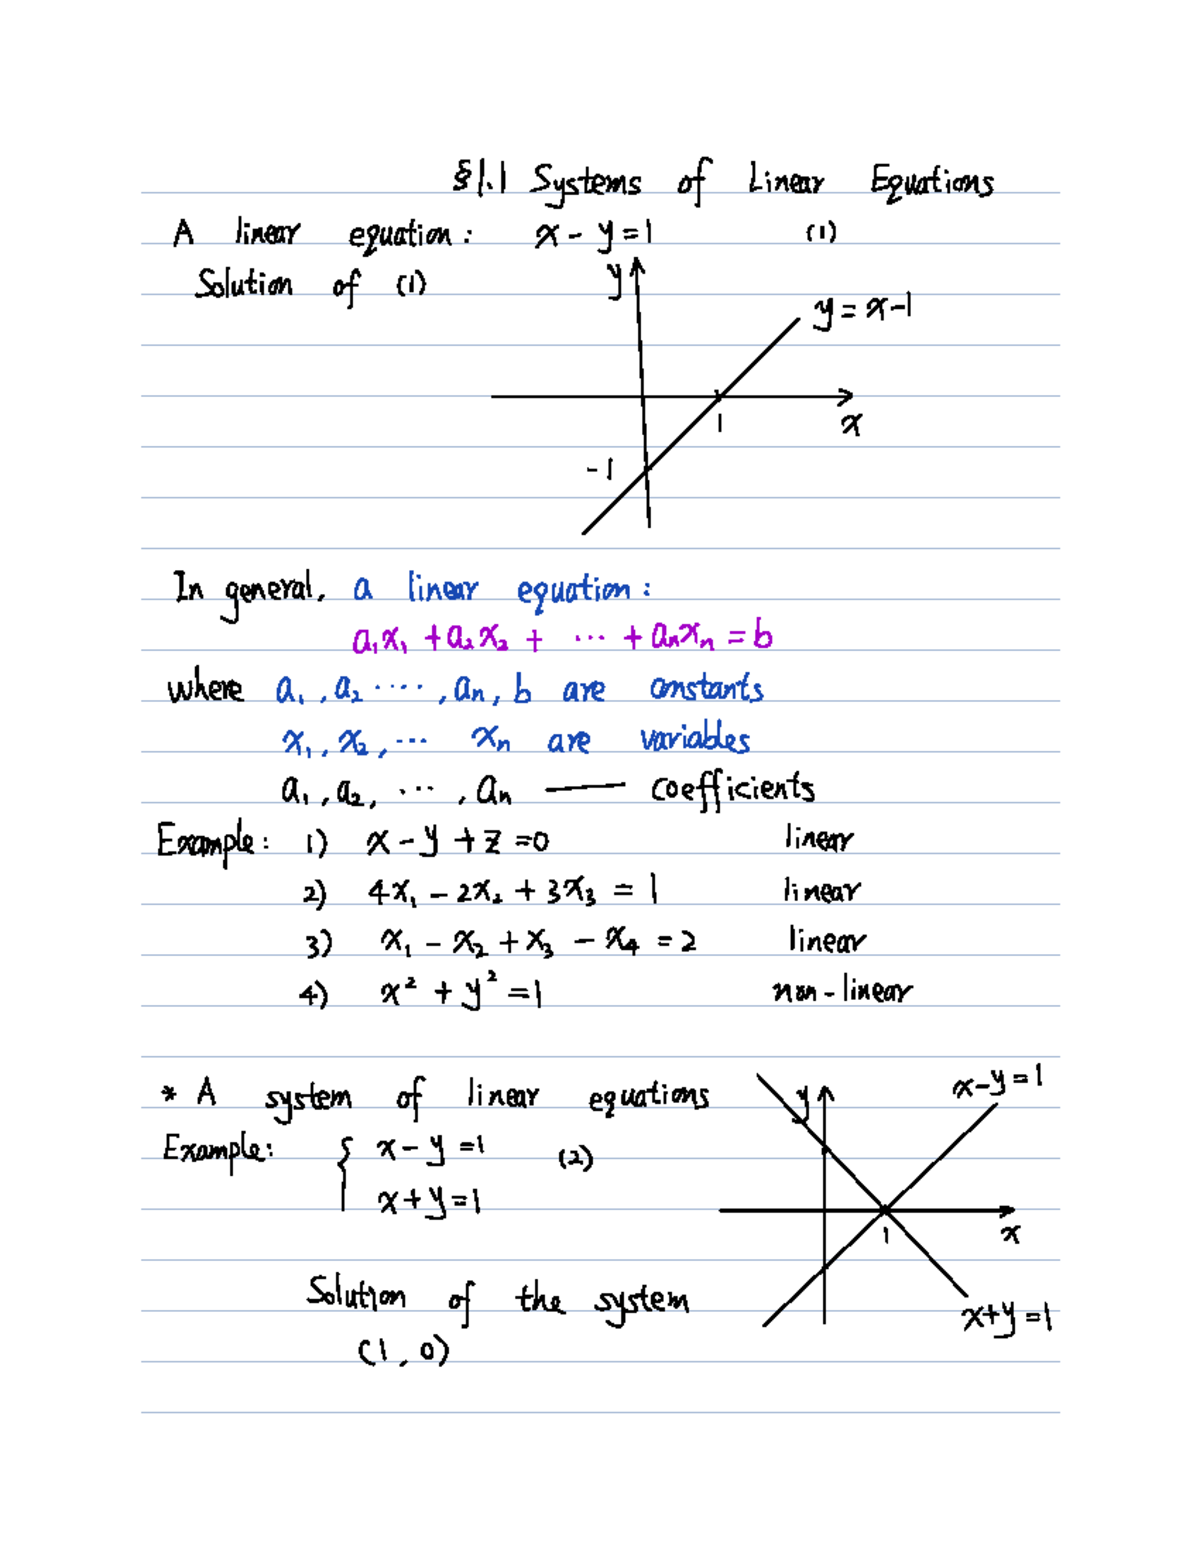 §1.1 Systems of Linear Equations
A linear equation: x - y = 1 (1)
Solution of (1)
y
y = x-1
1
x
-1
In general, a linear equation:
a₁x₁ + a₂x₂ + ··· + aₙxₙ = b
where a₁, a₂ ····, aₙ, b are constants
x₁, x₂, ··· xₙ are variables
a₁, a₂, ···, aₙ — coefficients
Example: 1) x - y + z = 0 linear
2) 4x₁ - 2x₂ + 3x₃ = 1 linear
3) x₁ - x₂ + x₃ - x₄ = 2 linear
4) x² + y² = 1 non-linear
* A system of linear equations
Example: { x - y = 1 (2)
x + y = 1
y
x-y=1
1
x
x+y=1
Solution of the system
(1, 0)